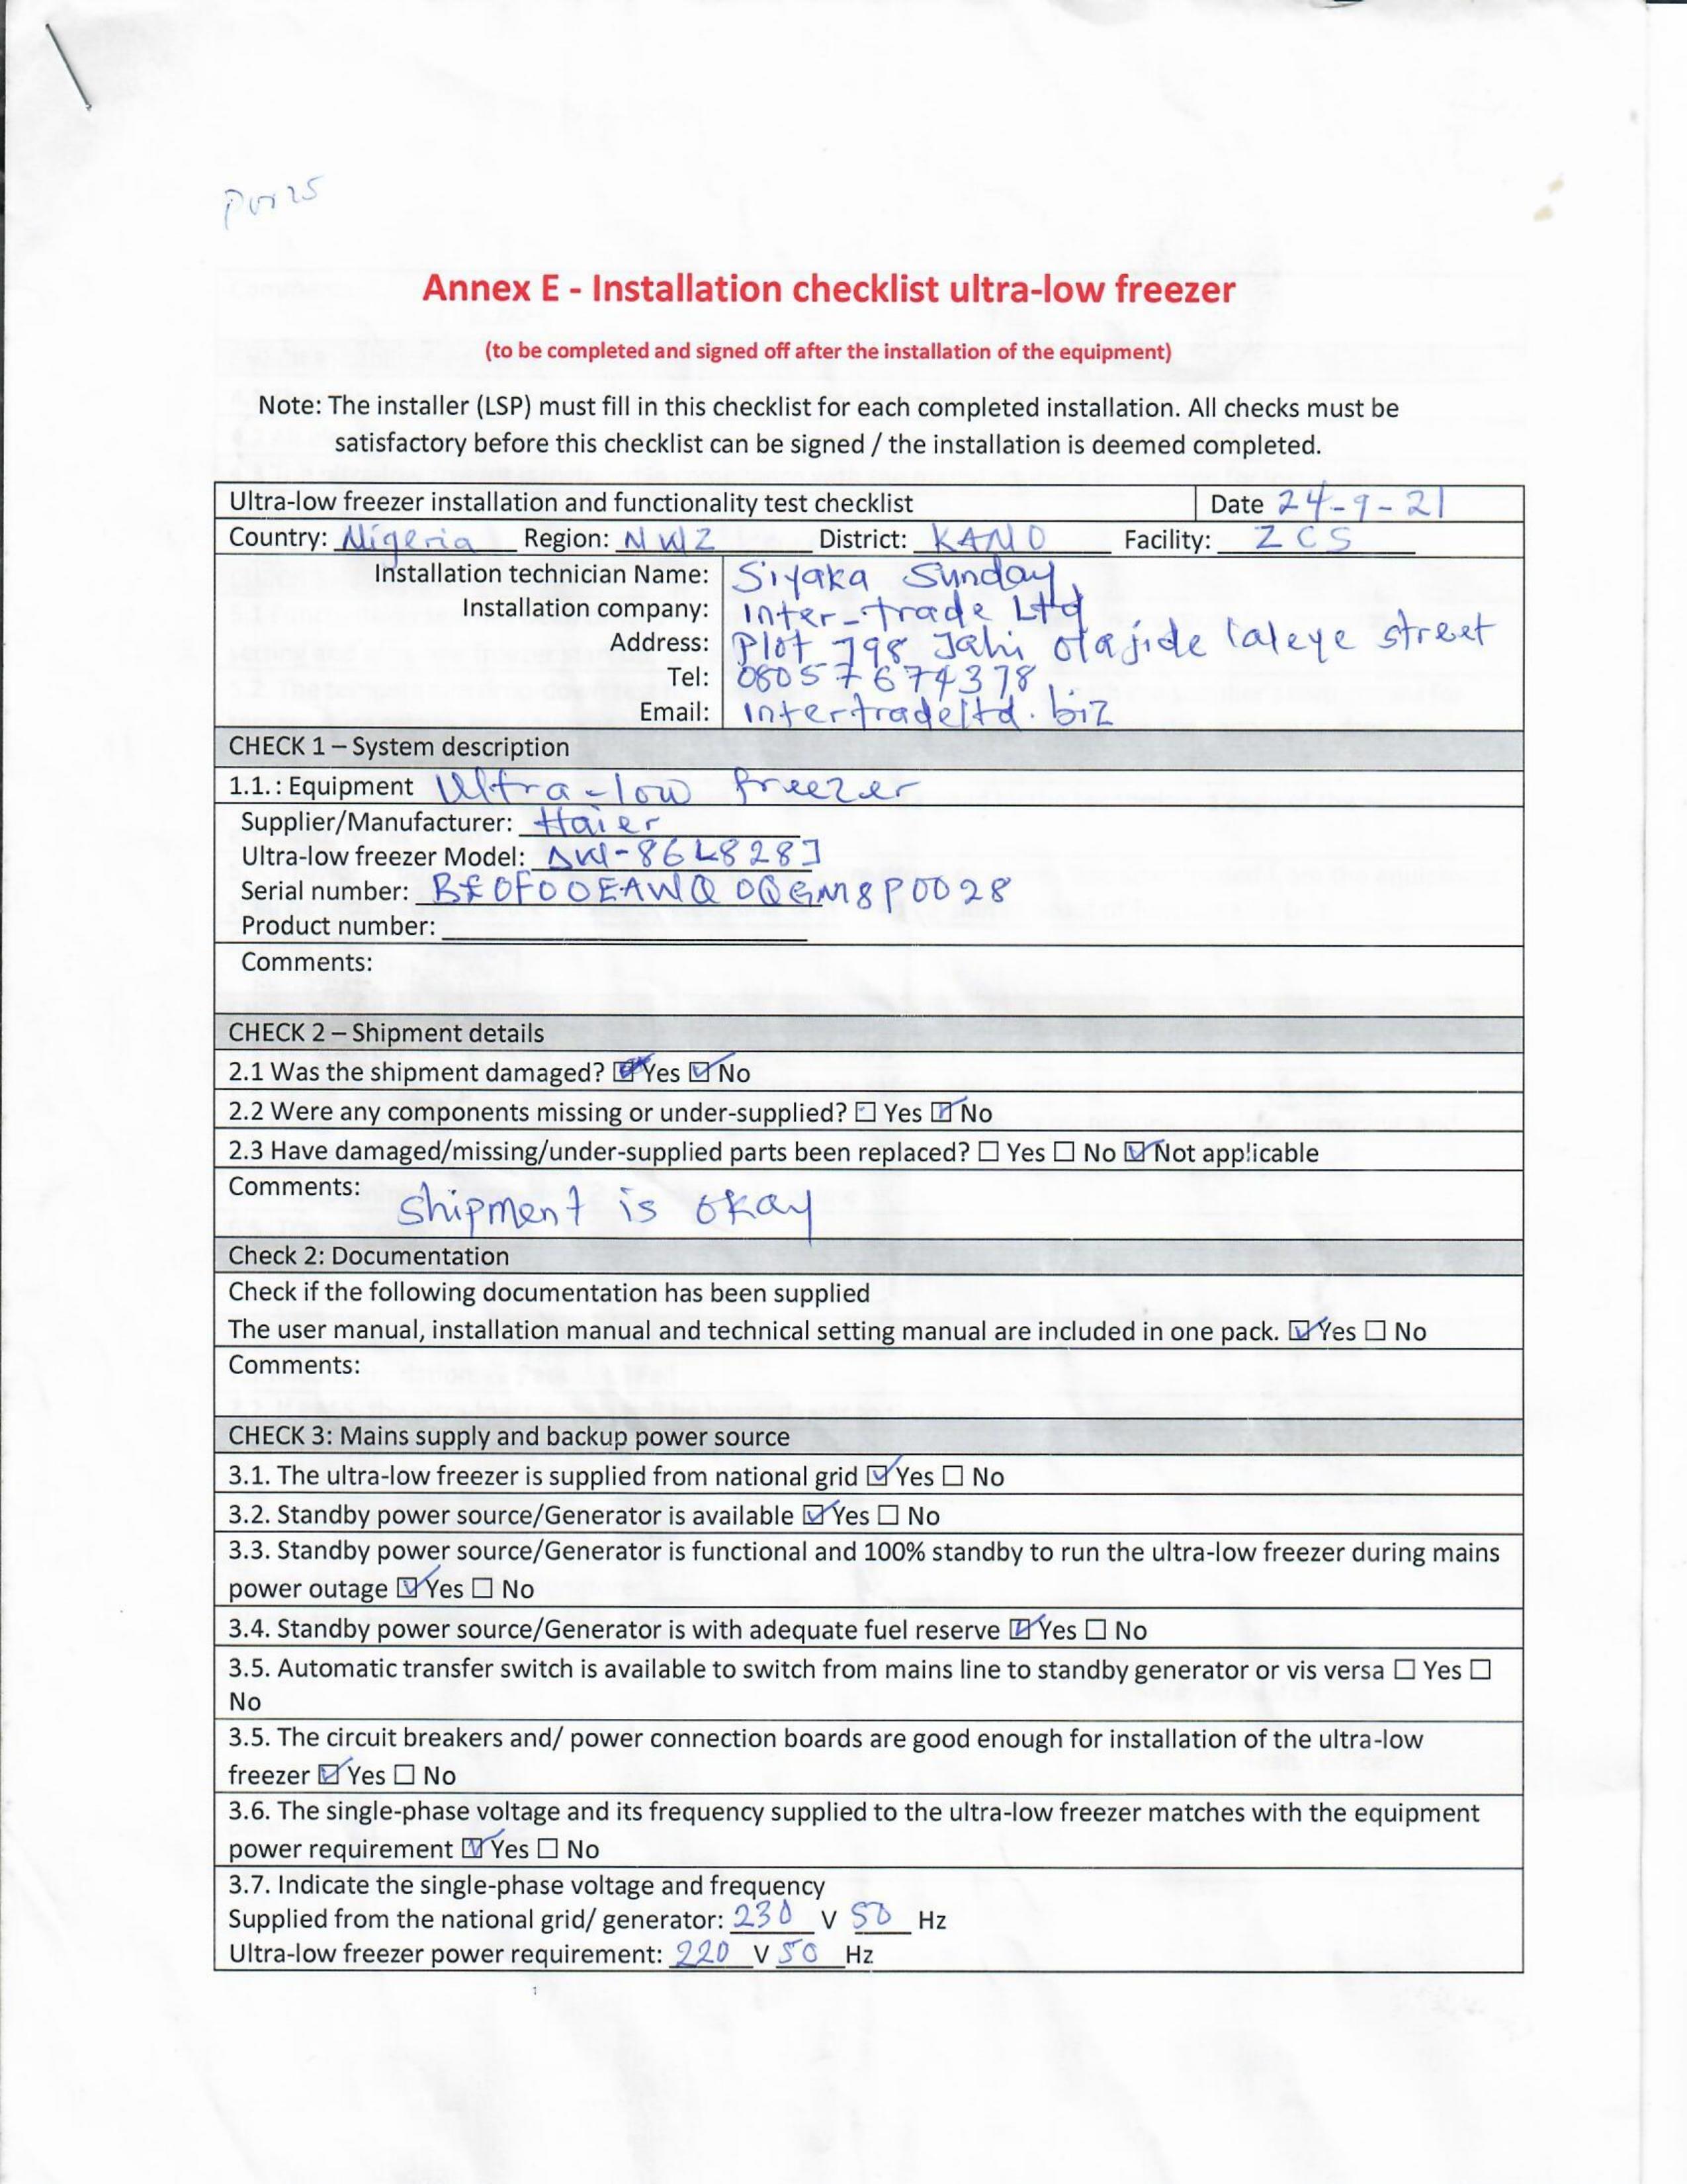 Annex E - Installation checklist ultra-low freezer
(to be completed and signed off after the installation of the equipment)
Note: The installer (LSP) must fill in this checklist for each completed installation. All checks must be
satisfactory before this checklist can be signed / the installation is deemed completed.
Ultra-low freezer installation and functionality test checklist Date 24-9-21
Country: Nigeria Region: NWZ District: KANO Facility: ZCS
Installation technician Name: Siyaka Sunday
Installation company: Inter-trade Ltd
Address: Plot 798 Jahi olajide laleye street
Tel: 08057674378
Email: Intertradeltd.biz
CHECK 1 – System description
1.1. : Equipment Ultra-low freezer
Supplier/Manufacturer: Haier
Ultra-low freezer Model: DW-86L828J
Serial number:
Product number:
Comments:
CHECK 2 – Shipment details
2.1 Was the shipment damaged? ☑ Yes ☑ No
2.2 Were any components missing or under-supplied? ☐ Yes ☑ No
2.3 Have damaged/missing/under-supplied parts been replaced? ☐ Yes ☐ No ☑ Not applicable
Comments: shipment is okay
Check 2: Documentation
Check if the following documentation has been supplied
The user manual, installation manual and technical setting manual are included in one pack. ☑ Yes ☐ No
Comments:
CHECK 3: Mains supply and backup power source
3.1. The ultra-low freezer is supplied from national grid ☑ Yes ☐ No
3.2. Standby power source/Generator is available ☑ Yes ☐ No
3.3. Standby power source/Generator is functional and 100% standby to run the ultra-low freezer during mains
power outage ☑ Yes ☐ No
3.4. Standby power source/Generator is with adequate fuel reserve ☑ Yes ☐ No
3.5. Automatic transfer switch is available to switch from mains line to standby generator or vis versa ☐ Yes ☐
No
3.5. The circuit breakers and/ power connection boards are good enough for installation of the ultra-low
freezer ☑ Yes ☐ No
3.6. The single-phase voltage and its frequency supplied to the ultra-low freezer matches with the equipment
power requirement ☑ Yes ☐ No
3.7. Indicate the single-phase voltage and frequency
Supplied from the national grid/ generator: 230 V 50 Hz
Ultra-low freezer power requirement: 220 V 50 Hz